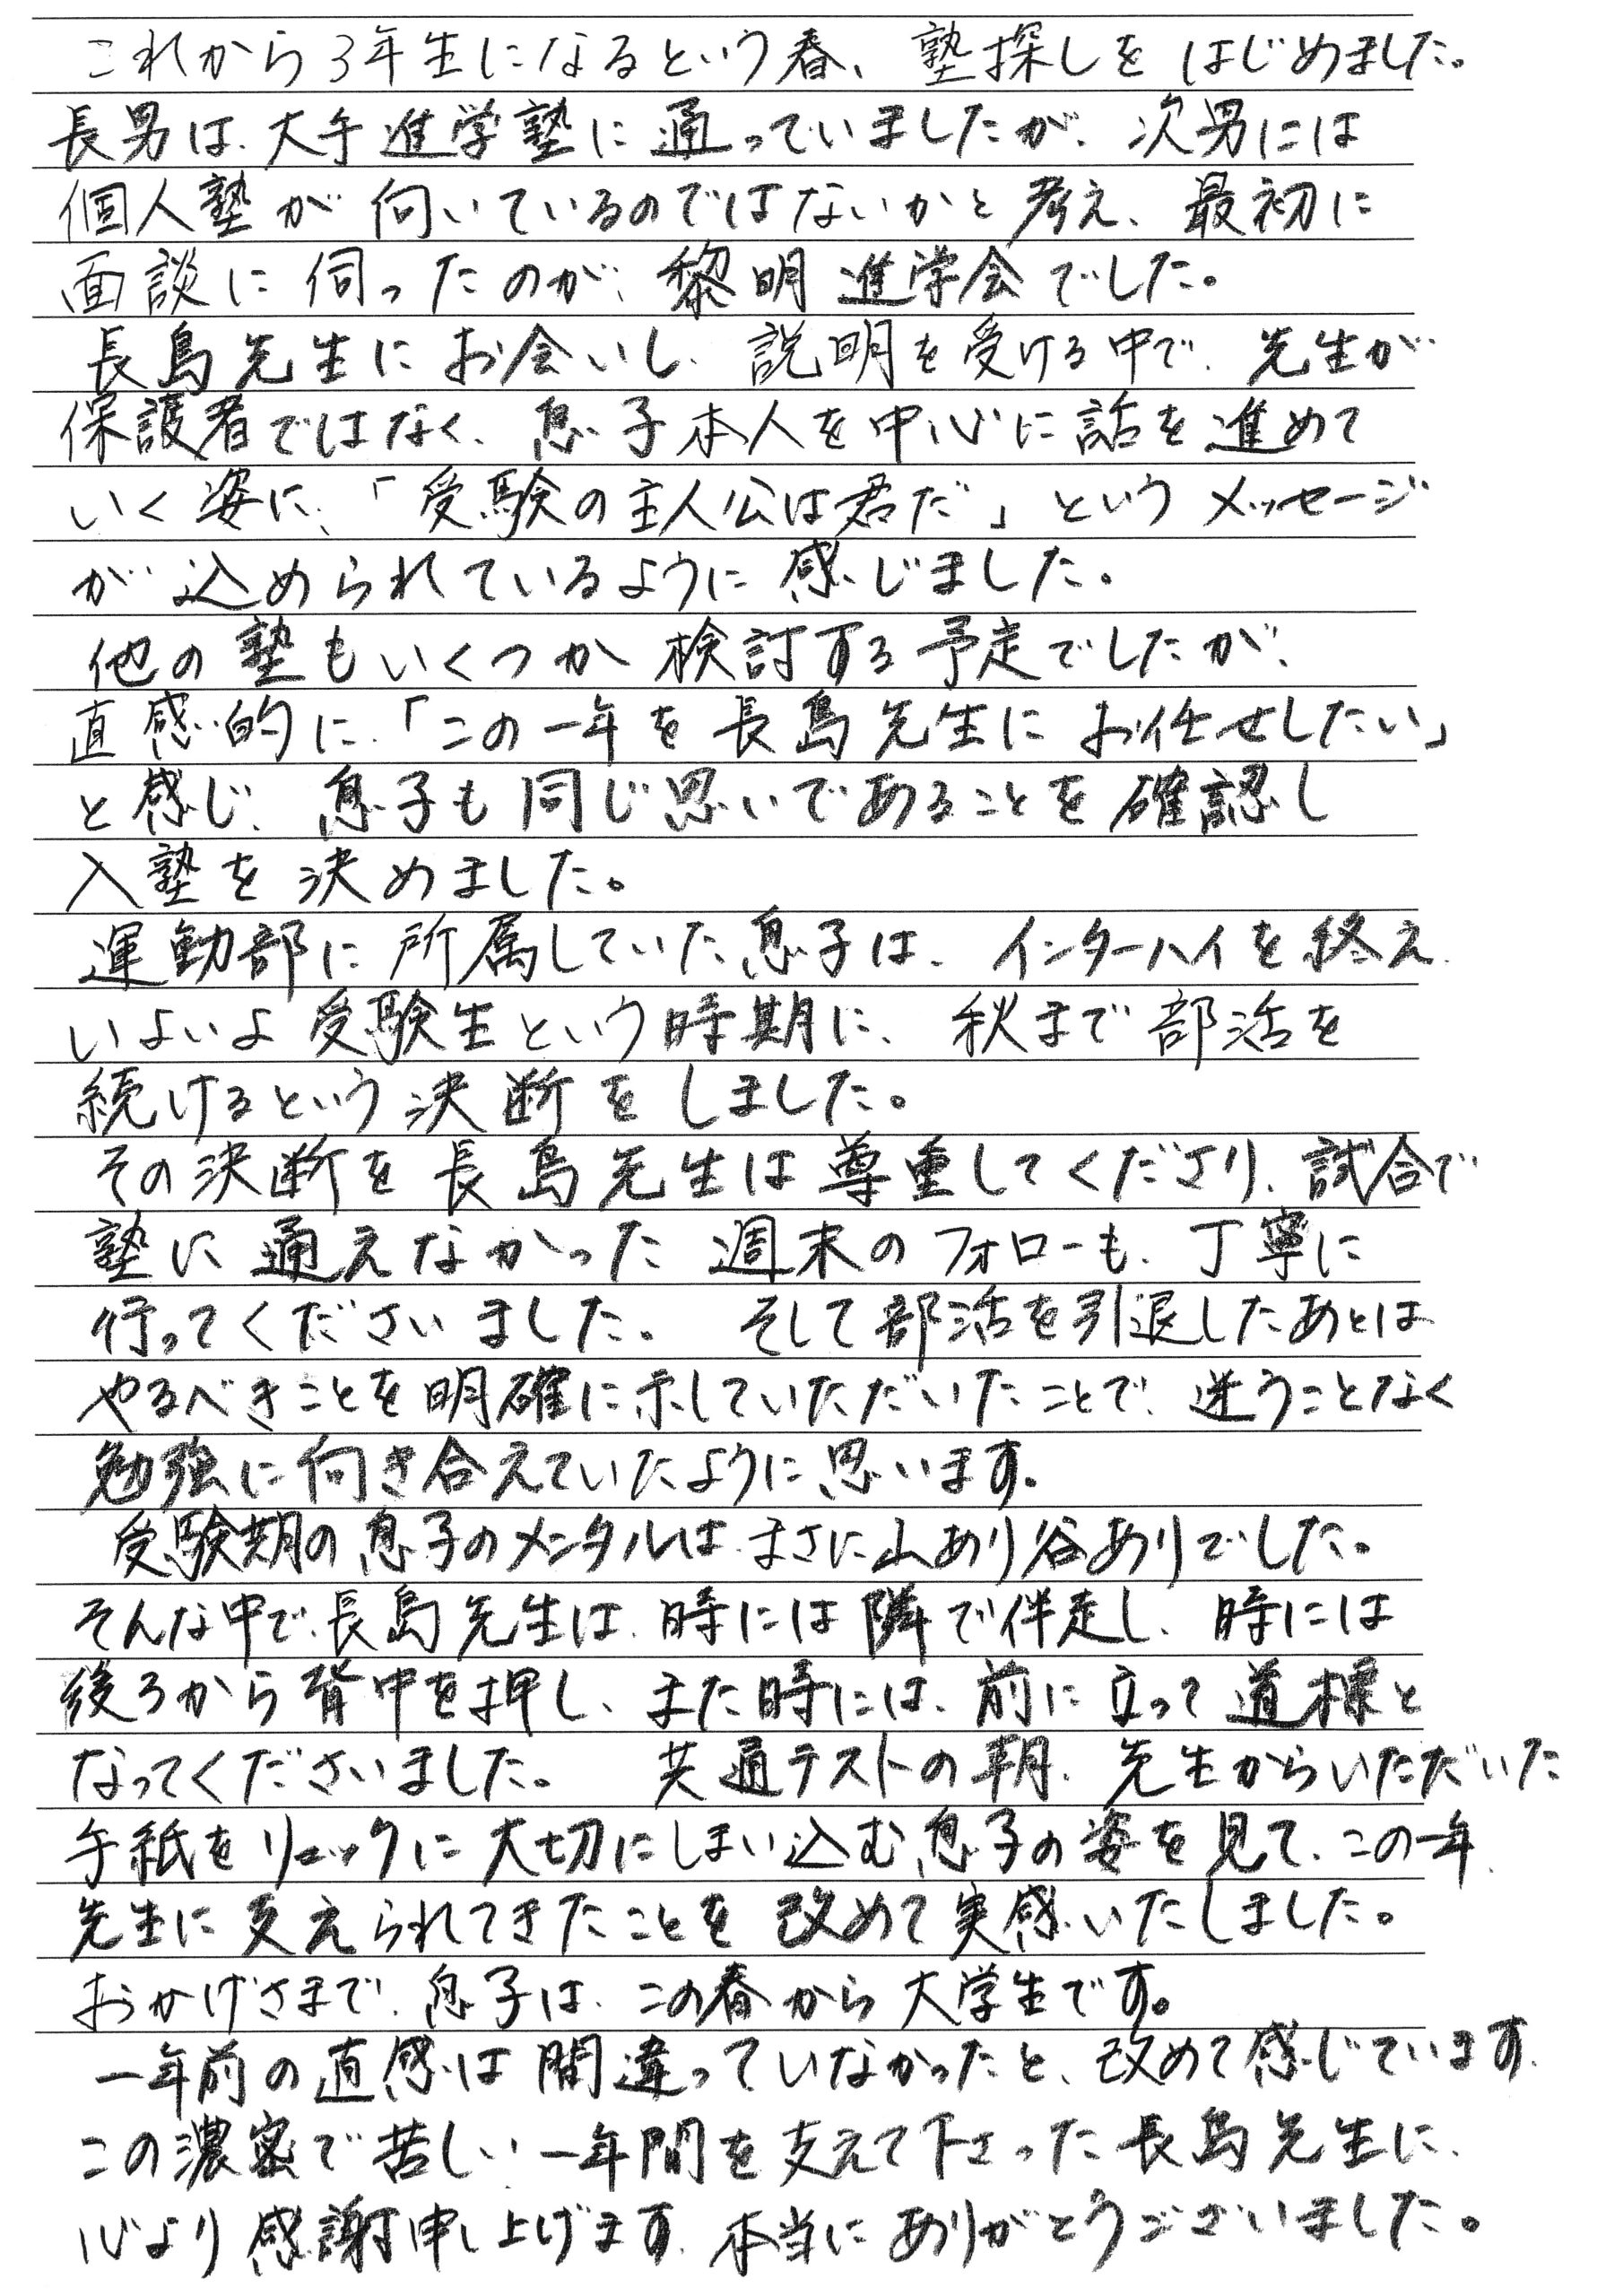 これから3年生になるという春、塾探しをはじめました。
長男は、大手進学塾に通っていましたが、次男には
個人塾が向いているのではないかと考え、最初に
面談に伺ったのが、黎明進学会でした。
長島先生にお会いし、説明を受ける中で、先生が
保護者ではなく、息子本人を中心に話を進めて
いく姿に、「受験の主人公は君だ」というメッセージ
が込められているように感じました。
他の塾もいくつか検討する予定でしたが、
直感的に、「この一年を長島先生にお任せしたい」
と感じ、息子も同じ思いであることを確認し
入塾を決めました。
運動部に所属していた息子は、インターハイを終え、
いよいよ受験生という時期に、秋まで部活を
続けるという決断をしました。
その決断を長島先生は尊重してくださり、試合で
塾に通えなかった週末のフォローも、丁寧に
行ってくださいました。そして部活を引退したあとは
やるべきことを明確に示していただいたことで、迷うことなく
勉強に向き合えていたように思います。
受験期の息子のメンタルは、まさに山あり谷ありでした。
そんな中で、長島先生は、時には隣で伴走し、時には
後ろから背中を押し、また時には、前に立って道標と
なってくださいました。共通テストの朝、先生からいただいた
手紙をリュックに大切にしまい込む息子の姿を見て、この一年、
先生に支えられてきたことを改めて実感いたしました。
おかげさまで、息子は、この春から大学生です。
一年前の直感は間違っていなかったと、改めて感じています。
この濃密で苦しい一年間を支えて下さった長島先生に、
心より感謝申し上げます。本当にありがとうございました。